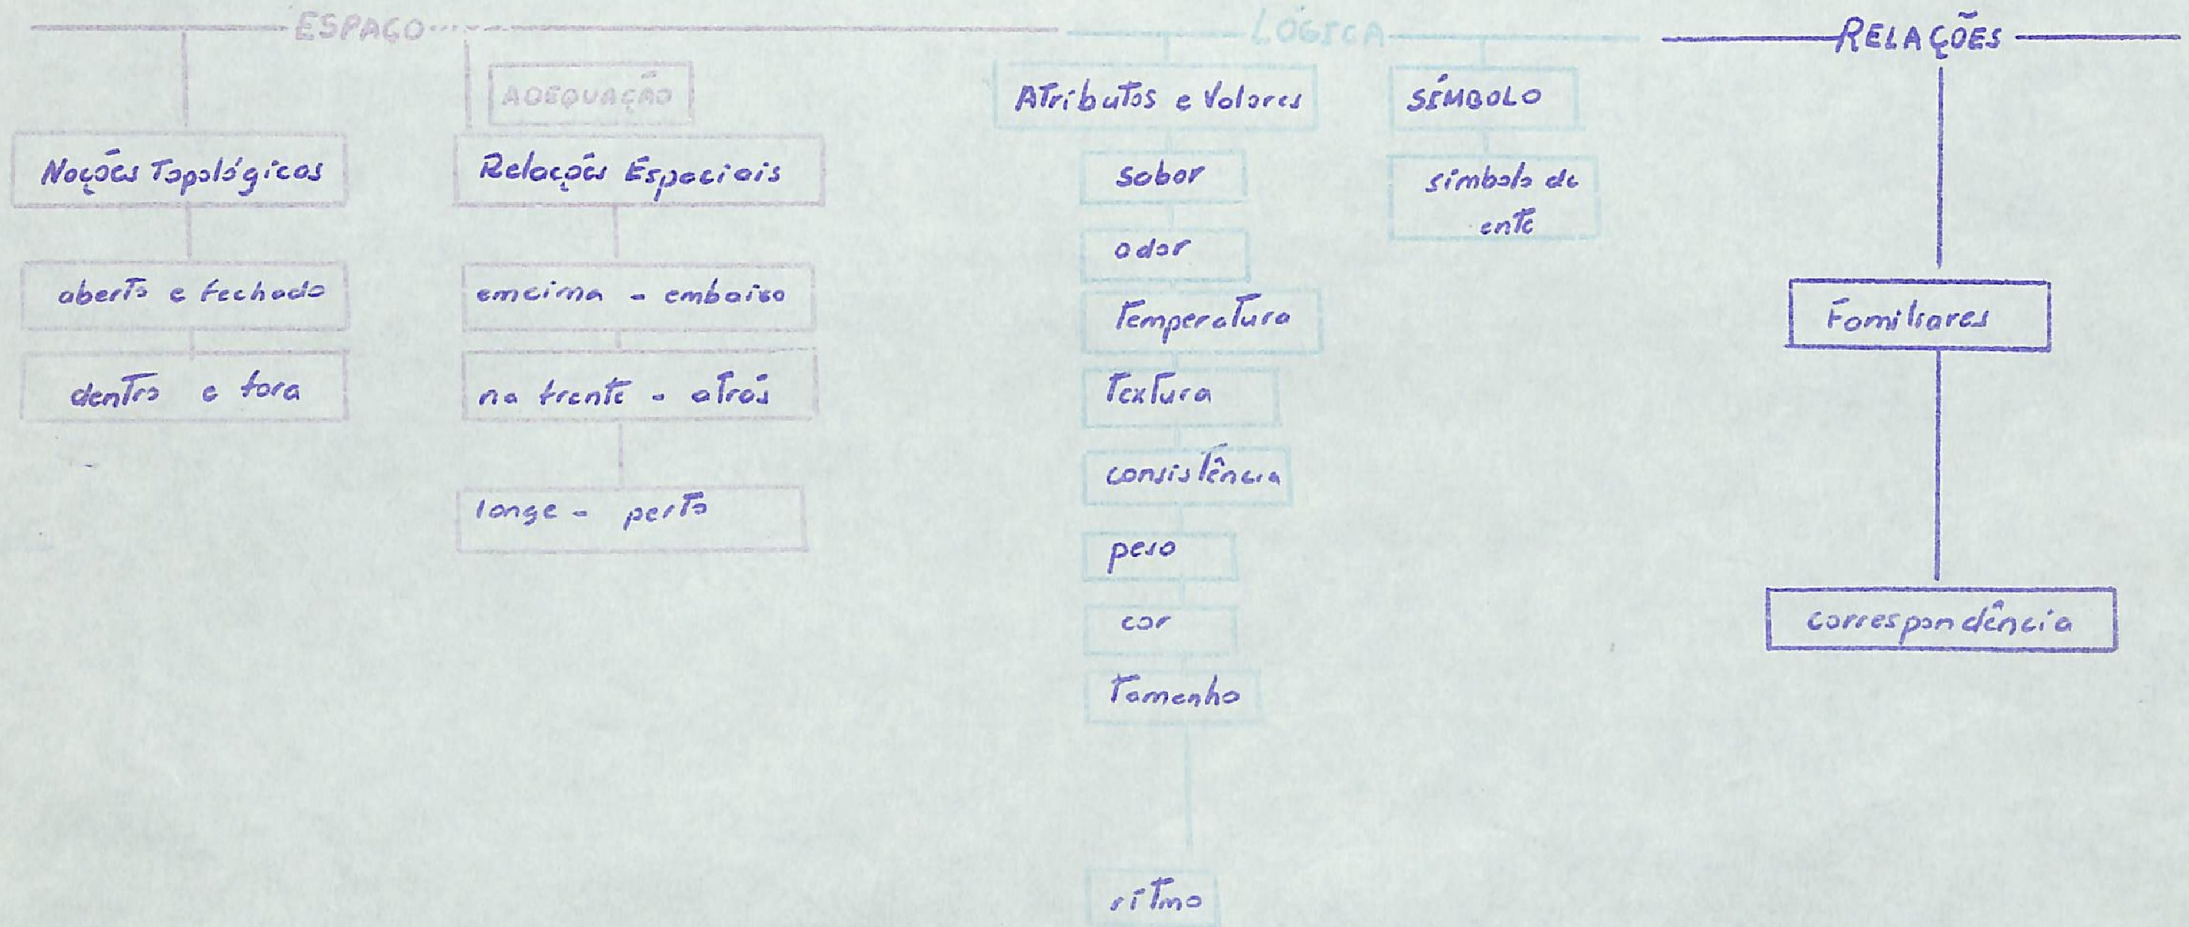 ESPAÇO
ADEQUAÇÃO
Noções Topológicas
aberto e fechado
dentro e fora
Relações Espaciais
emcima - embaixo
na frente - atrás
longe - perto
LÓGICA
Atributos e Valores
sabor
odor
Temperatura
Textura
consistência
peso
cor
Tamanho
ritmo
SÍMBOLO
símbolo de
ente
RELAÇÕES
Familiares
correspondência